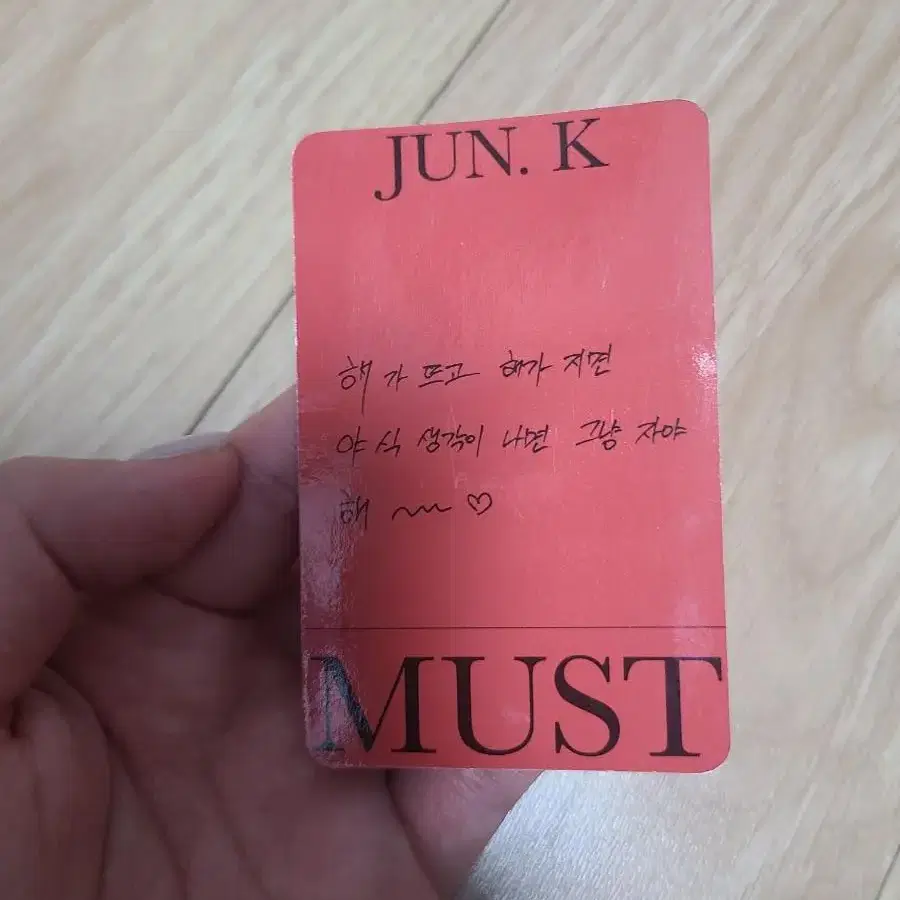 JUN. K
해가 뜨고 해가 지면
야식 생각이 나면 그냥 자야
해 ~~ ♡
MUST